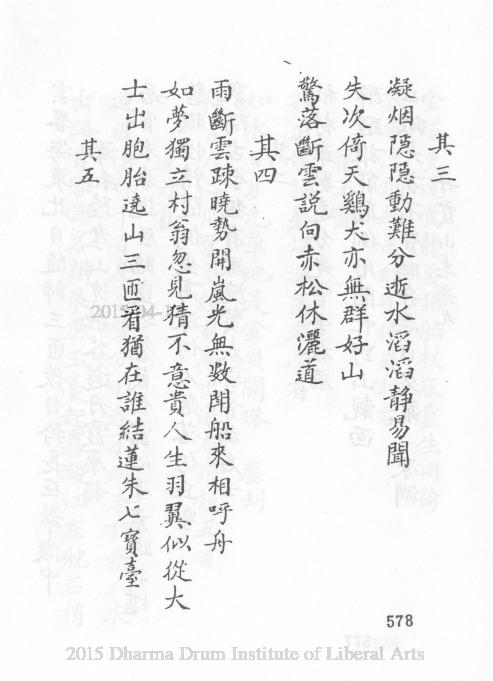 其三
凝烟隐隐動難分逝水滔滔静易聞
失次倚天鷄犬亦無群好山
驚落斷雲説向赤松休灑道
其四
雨斷雲踈曉勢開嵐光無数閗船來相呼舟
如夢獨立村翁忽見猜不意貴人生羽翼似從大
士出胞胎遶山三匝看猶在誰結蓮朱七寳臺
其五
578
2015 Dharma Drum Institute of Liberal Arts